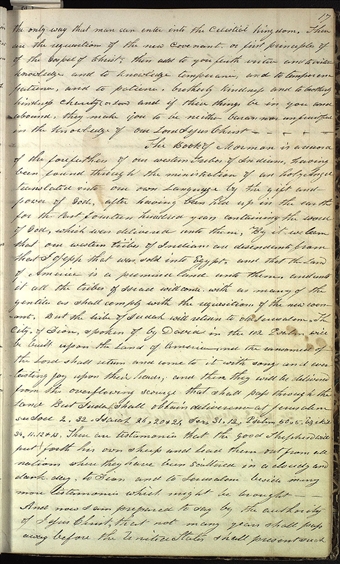 17
the only way that man can enter into the Celestial Kingdom. These
are the requesition of the new Covenant or first principles of
of the Gospel of Christ. then add to your faith virtue and to virtue
knowledge and to knowledge temperance, and to temperance
patience, and to patience, brotherly kindness and to brotherly
kindness charity and if these things be in you and
abound, they make you to be neither baran nor unfruitful
in the Knowledge of our Lord Jesus Christ
The Book of Mormon is a record
of the forefathers of our western Tribes of Indians, having
been found through the ministration of an holy Angel
translated into our own Language by the gift and
power of God, after having been hid up in the earth
for the last fourteen hundred years containing the word
of God, which was delivered unto them, By it we learn
that our western tribes of Indians are desendants from
that Joseph that was sold into Egypt, and that the land
of America is a promised land unto them, and unto
it all the tribes of Israel will come, with as many of the
gentiles as shall comply with the requesitions of the new cove-
nant. But the tribe of Judah will return to old Jerusalem. The
City of Zion, spoken of by David in the 102 Psalm will
be built upon the Land of America and the ransomed of
the Lord shall return and come to it with song and ever
lasting joy upon their heads, and then they will be delivered
from the overflowing scourge that shall pass through the
land But Judah shall obtain deliverence at Jerusalem
see Joel 2. 32. Isaiah 26, 20 & 21, Jer. 31. 12, Psalm 50. 5, Ezekiel
34, 11. 12 & 13. These are testamonies that the good Shepherd will
put forth his own sheep and lead them out from all
nations where they have been scattered in a cloudy and
dark day, to Zion and to Jerusalem beside many
more testamonies which might be brought
And now I am prepared to say by the authority
of Jesus Christ, that not many years shall pass
away before the United States shall present such